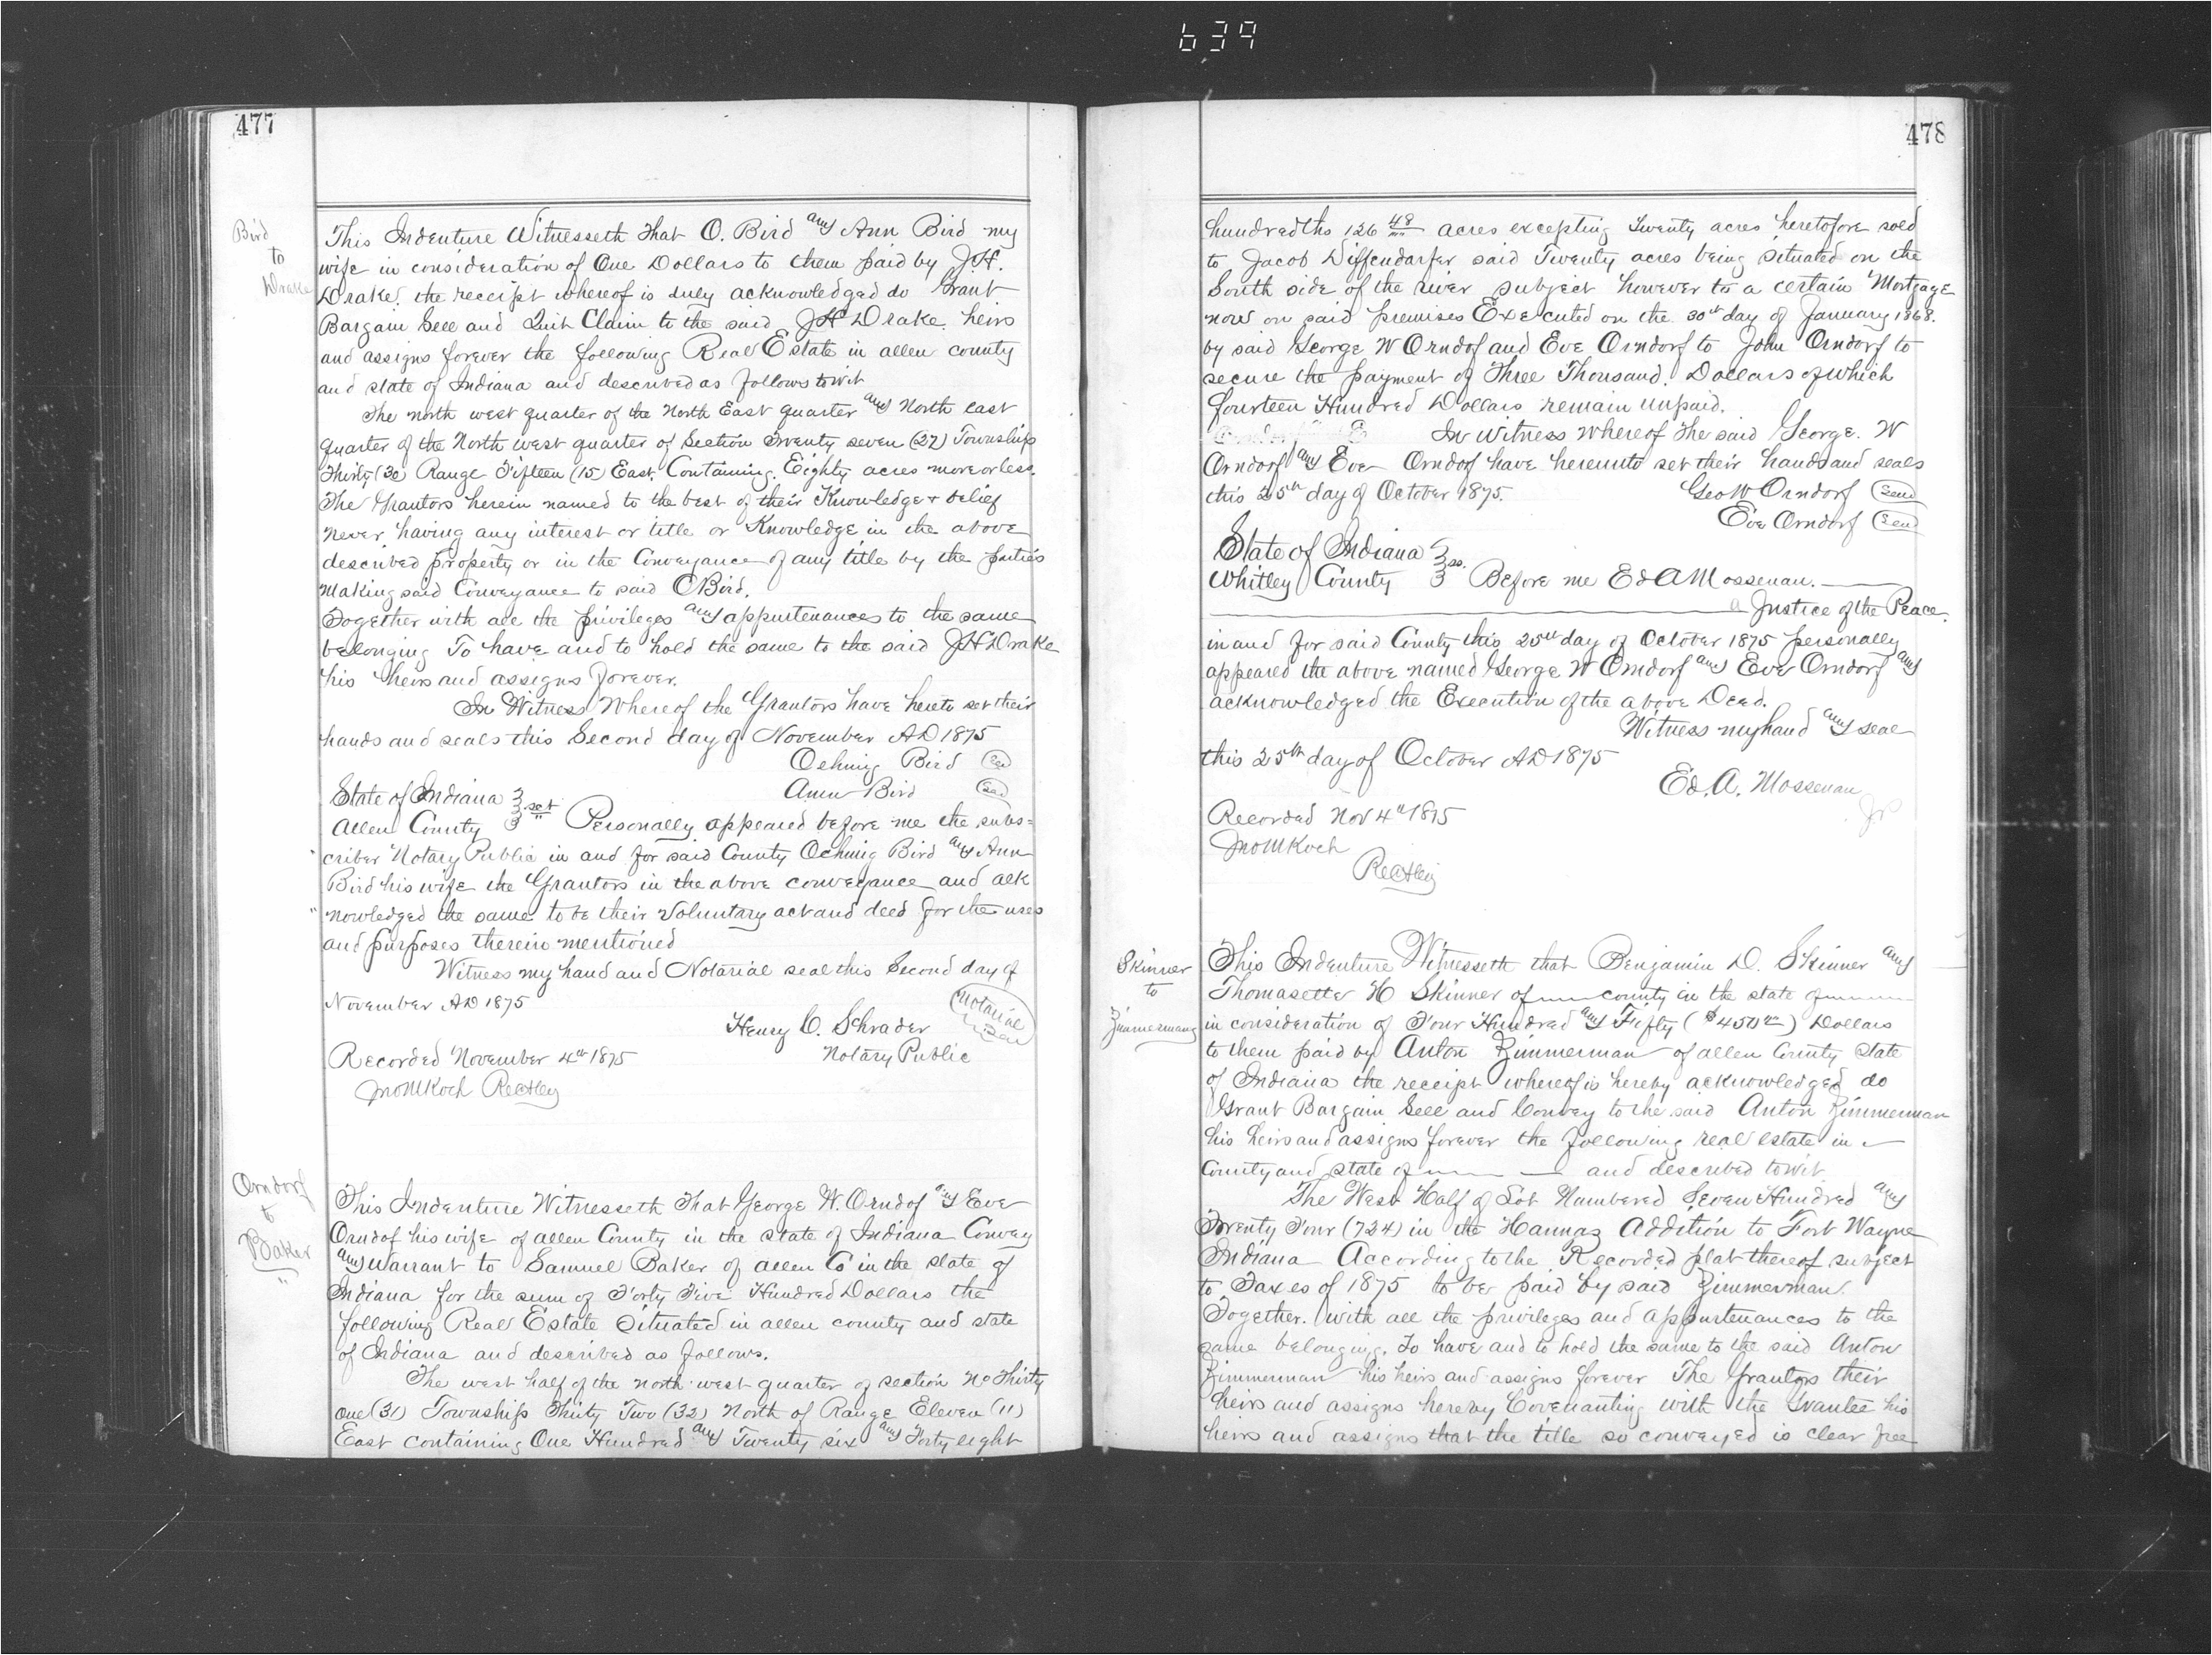 639
477
Bird
to
Drake
This Indenture Witnesseth That O. Bird and Ann Bird my
wife in consideration of One Dollars to them paid by J.H.
Drake. the receipt whereof is duly acknowledged do Grant
Bargain Sell and Quit Claim to the said JH Drake. heirs
and assigns forever the following Real Estate in allen county
and state of Indiana and described as follows towit
The north west quarter of the North East quarter and North east
quarter of the North west quarter of Section Twenty seven (27) Township
Thirty (30) Range Fifteen (15) East. Containing. Eighty acres more or less.
The Grantors herein named to the best of their Knowledge & belief
never having any interest or title or Knowledge in the above
described property or in the Conveyance of any title by the parties
making said Conveyance to said O Bird.
Together with all the privileges and appurtenances to the same
belonging To have and to hold the same to the said JH Drake
his heirs and assigns forever.
In Witness Whereof the Grantors have hereto set their
hands and seals this Second day of November AD 1875
Ochmig Bird Seal
Ann Bird Seal
State of Indiana
Allen County } sct Personally appeared before me the subs=
criber Notary Public in and for said County Ochmig Bird and Ann
Bird his wife the Grantors in the above conveyance and ack
"nowledged the same to be their Voluntary act and deed for the uses
and purposes therein mentioned
Witness my hand and Notarial seal this Second day of
November AD 1875
Notarial Seal
Henry C. Schrader
Notary Public
Recorded November 4th 1875
Jno M Koch Rec Aley
Orndorf
to
Baker
This Indenture Witnesseth That George W. Orndof and Eve
Orndof his wife of allen County in the state of Indiana Convey
and Warrant to Samuel Baker of allen Co in the state of
Indiana for the sum of Forty Five Hundred Dollars the
following Real Estate Situated in allen county and state
of Indiana and described as follows.
The west half of the north west quarter of section No Thirty
One (31) Township Thirty Two (32) North of Range Eleven (11)
East containing One Hundred and Twenty six and Forty eight
478
hundredths 126 48/100 acres excepting Twenty acres heretofore sold
to Jacob Diffendarfer said Twenty acres being situated on the
South side of the river subject however to a certain Mortgage
now on said premises Executed on the 30th day of January 1868.
by said George W Orndof and Eve Orndorf to John Orndorf to
secure the payment of Three Thousand. Dollars of which
fourteen Hundred Dollars remain unpaid.
In Witness Whereof The said George. W
Orndorf and Eve Orndof have hereunto set their hands and seals
this 25th day of October 1875. Geo W Orndorf Seal
Eve Orndorf Seal
State of Indiana
Whitley County } ss. Before me Ed A Mossenan.
a Justice of the Peace.
in and for said County this 25th day of October 1875 personally
appeared the above named George W Orndorf and Eve Orndorf and
acknowledged the Execution of the above Deed.
Witness my hand and seal
this 25th day of October AD 1875
Ed. A. Mossenan
JP
Recorded Nov 4th 1875
Jno M Koch
Rec Aley
Skinner
to
Zimmermann
This Indenture Witnesseth that Benjamin D. Skinner and
Thomasette H Skinner of county in the state of
in consideration of Four Hundred and Fifty ($450 00) Dollars
to them paid by Anton Zimmerman of allen County state
of Indiana the receipt whereof is hereby acknowledged do
Grant Bargain Sell and Convey to the said Anton Zimmerman
his heirs and assigns forever the following real estate in
County and state of and described towit
The West Half of Lot Numbered Seven Hundred and
Twenty Four (724) in the Hannas Addition to Fort Wayne
Indiana According to the Recorded plat thereof subject
to Taxes of 1875 to be paid by said Zimmerman.
Together. with all the privileges and appurtenances to the
same belonging. To have and to hold the same to the said Anton
Zimmerman his heirs and assigns forever The Grantors their
heirs and assigns hereby Covenanting with the Grantee his
heirs and assigns that the title so conveyed is clear free